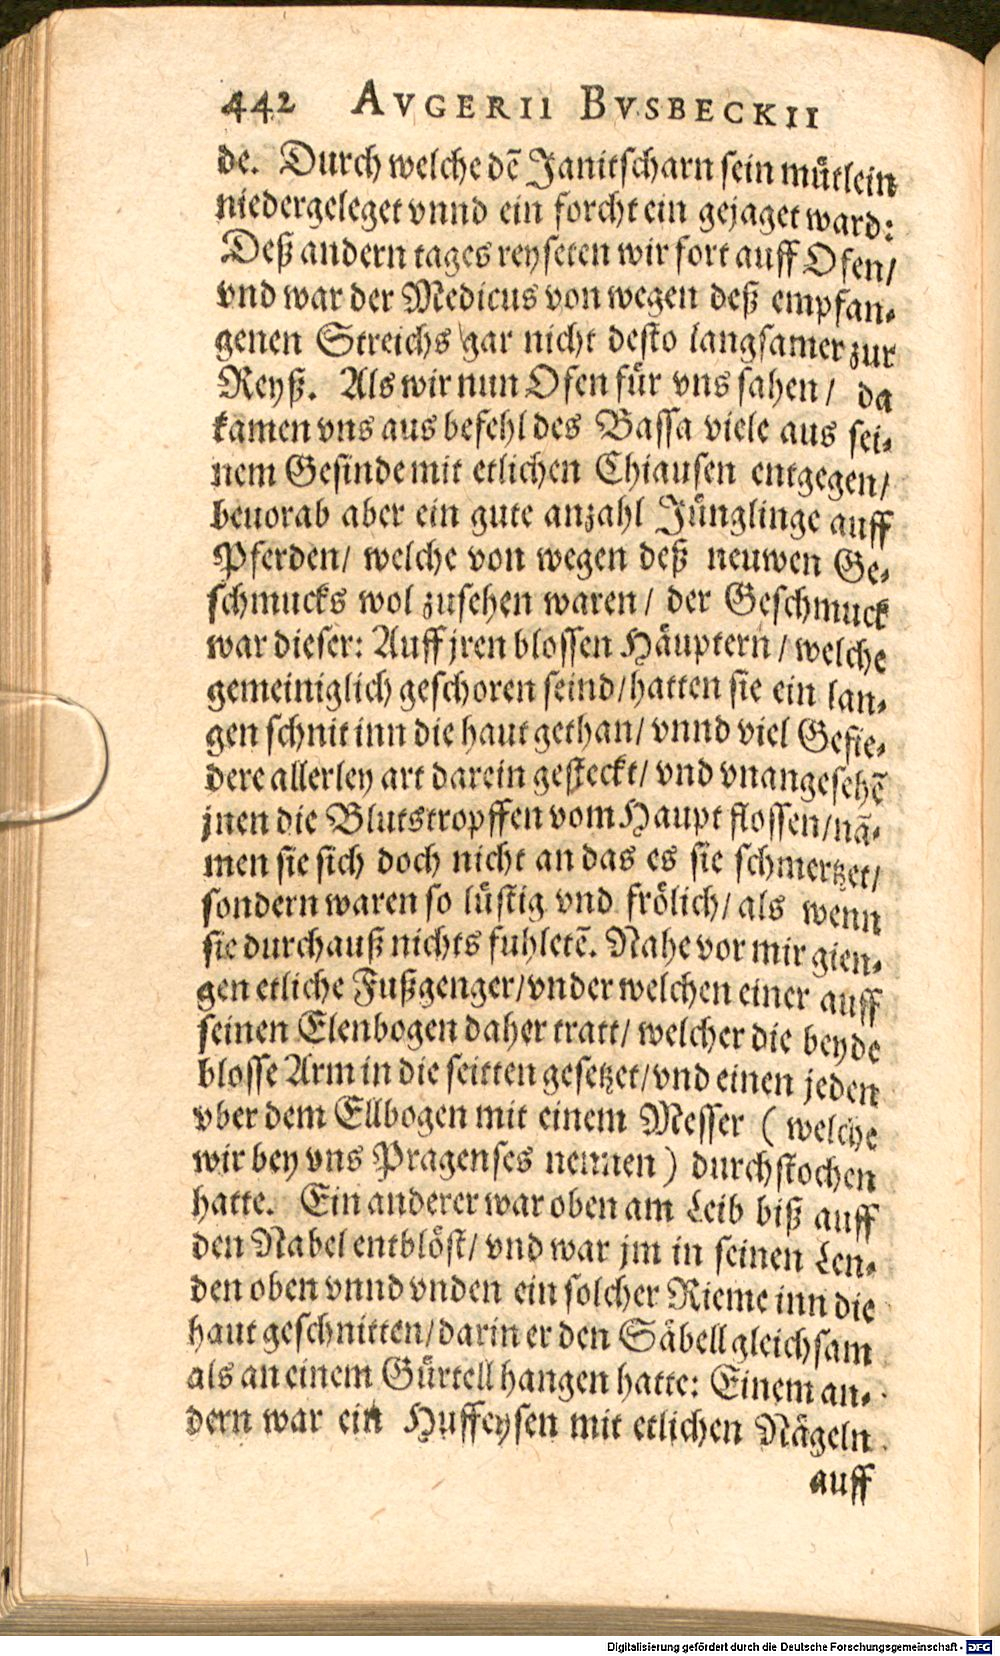 442 AVGERII BVSBECKII
de. Durch welche dē Janitscharn sein mütlein
niedergeleget vnnd ein forcht ein gejaget ward:
Deß andern tages reyseten wir fort auff Ofen/
vnd war der Medicus von wegen deß empfan-
genen Streichs gar nicht desto langsamer zur
Reyß. Als wir nun Ofen für vns sahen/ da
kamen vns aus befehl des Bassa viele aus sei-
nem Gesinde mit etlichen Chiausen entgegen/
beuorab aber ein gute anzahl Jünglinge auff
Pferden/ welche von wegen deß neuwen Ge-
schmucks wol zusehen waren/ der Geschmuck
war dieser: Auff jren blossen Häuptern/ welche
gemeiniglich geschoren seind/ hatten sie ein lan-
gen schnit inn die haut gethan/ vnnd viel Gefie-
dere allerley art darein gesteckt/ vnd vnangesehē
jnen die Blutstropffen vom Haupt flossen/ nā-
men sie sich doch nicht an das es sie schmertzet/
sondern waren so lüstig vnd frölich/ als wenn
sie durchauß nichts fuhletē. Nahe vor mir gien-
gen etliche Fußgenger/ vnder welchen einer auff
seinen Elenbogen daher tratt/ welcher die beyde
blosse Arm in die seitten gesetzet/ vnd einen jeden
vber dem Ellbogen mit einem Messer ( welche
wir bey vns Pragenses nennen ) durchstochen
hatte. Ein anderer war oben am Leib biß auff
den Nabel entblöst/ vnd war jm in seinen Len-
den oben vnnd vnden ein solcher Rieme inn die
haut geschnitten/ darin er den Säbell gleichsam
als an einem Gürtell hangen hatte: Einem an-
dern war ein Huffeysen mit etlichen Nägeln
auff
Digitalisierung gefördert durch die Deutsche Forschungsgemeinschaft - DFG